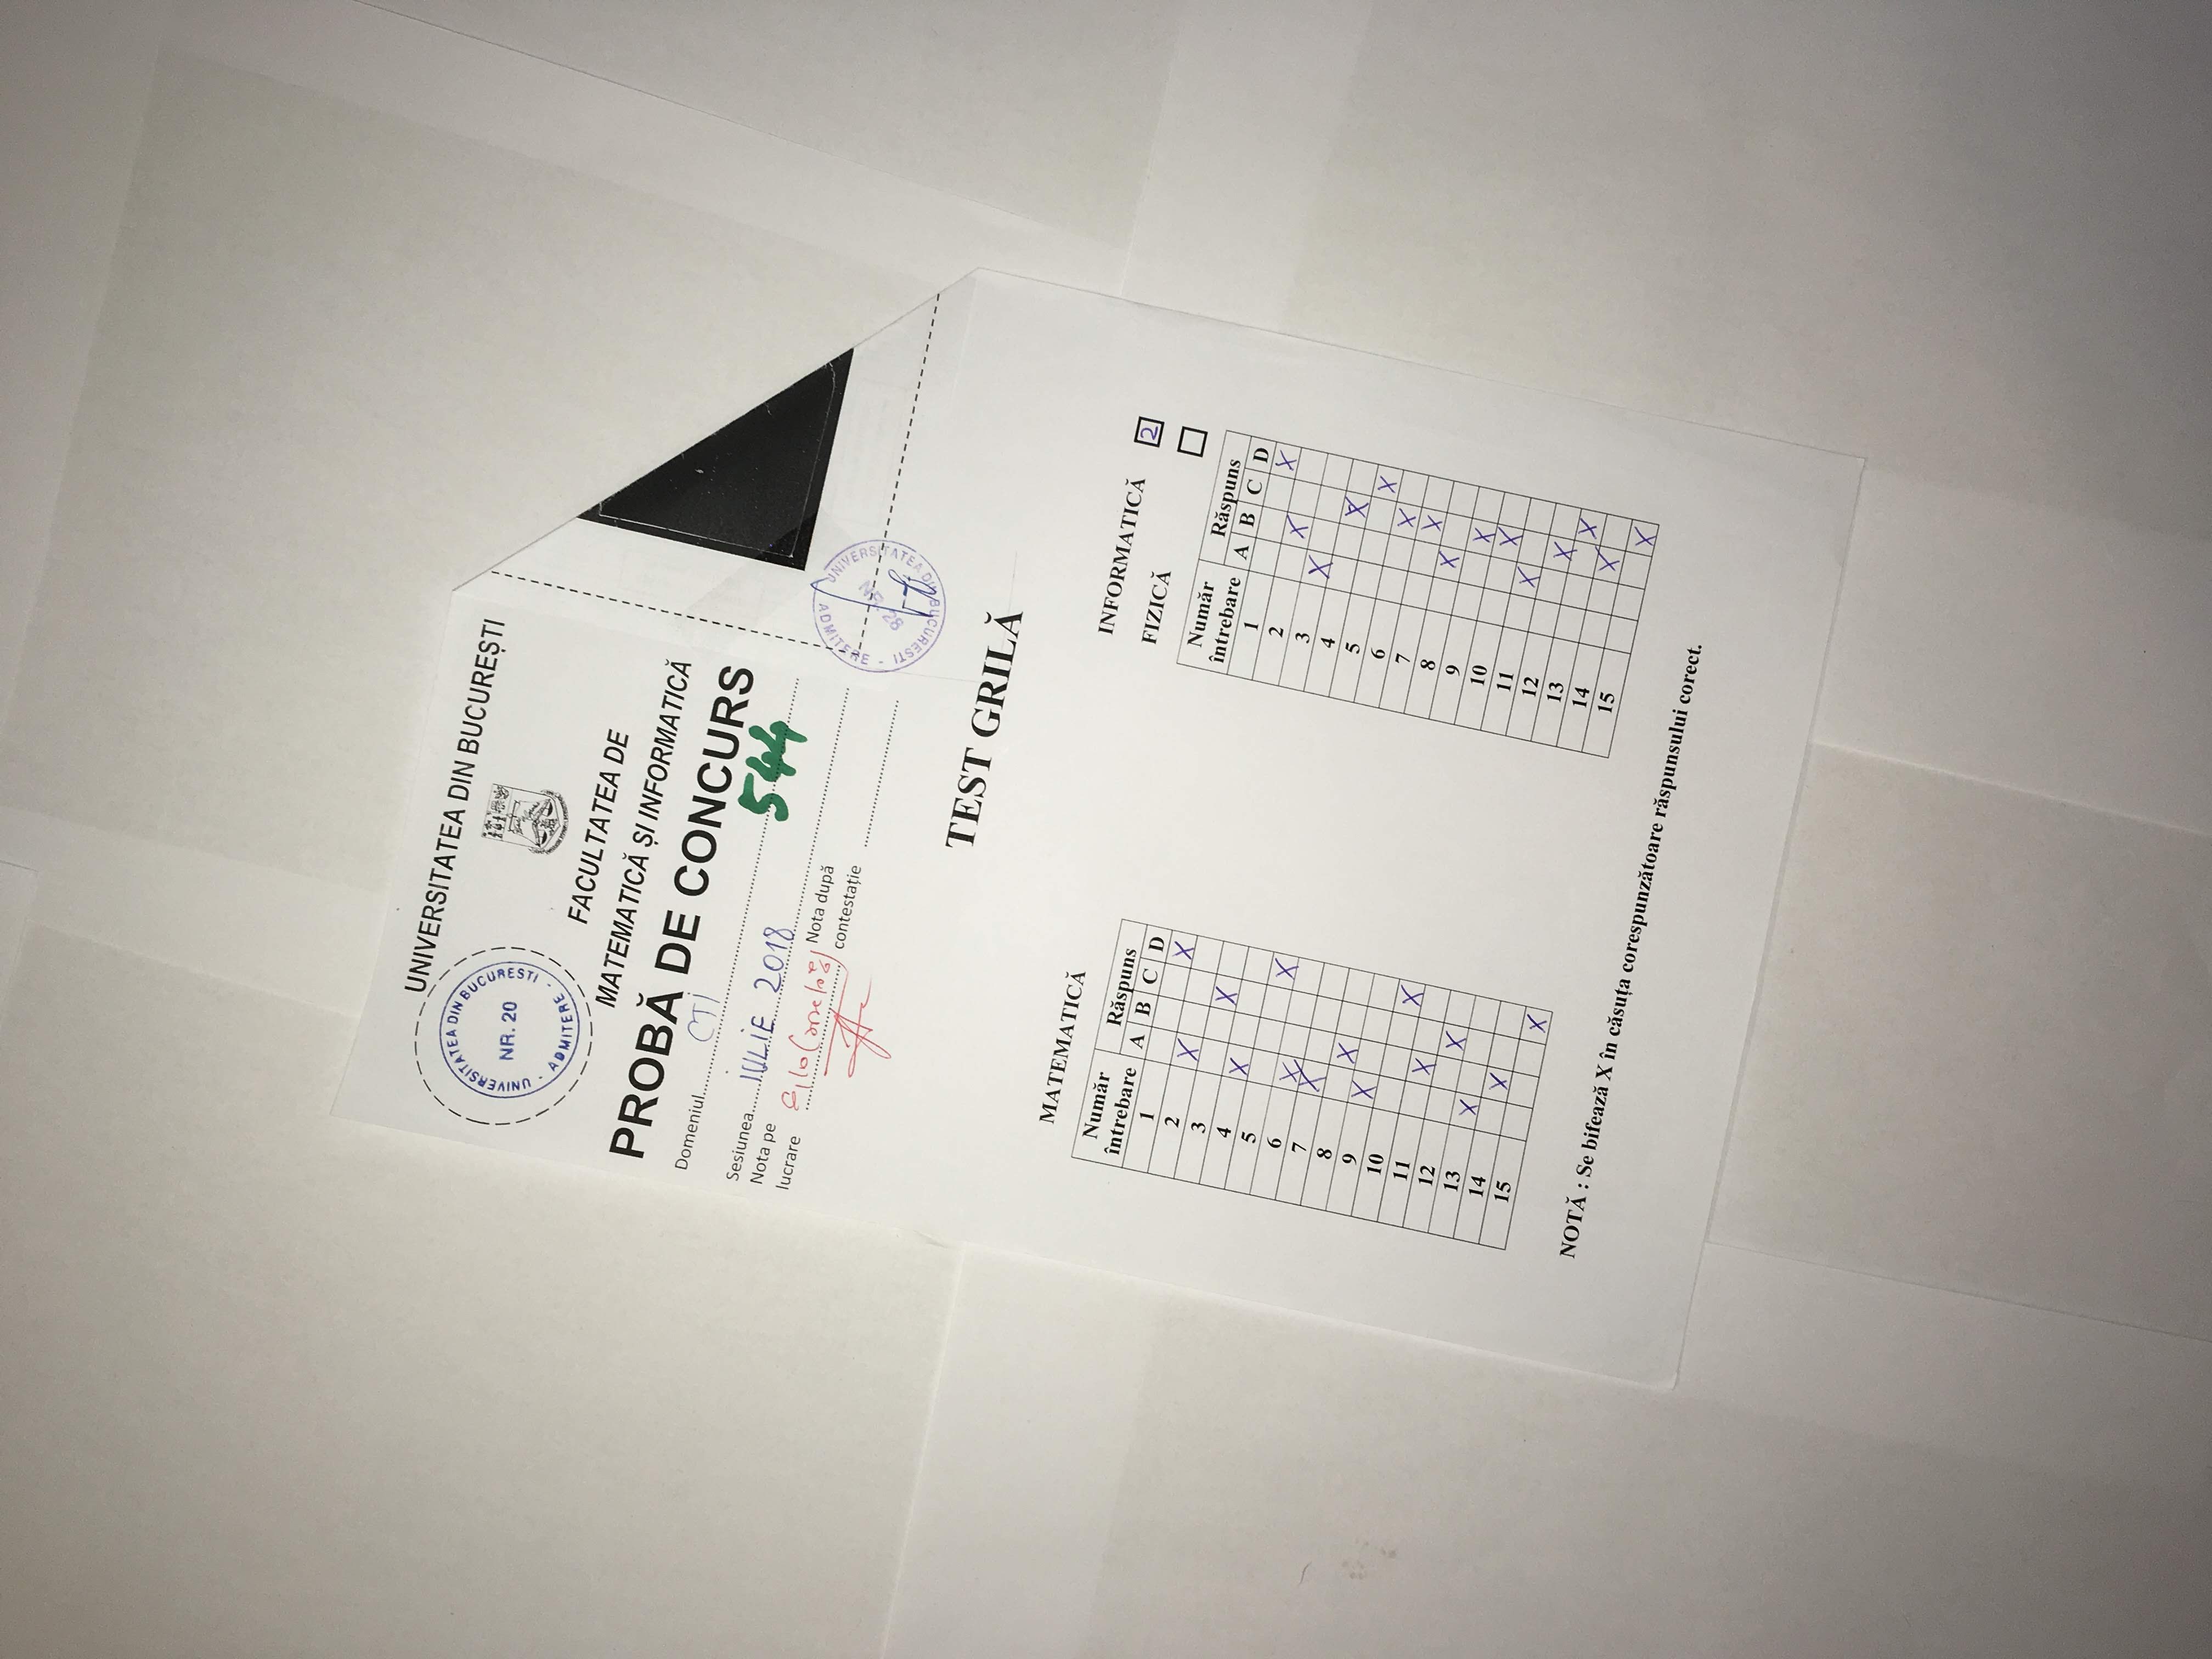 UNIVERSITATEA DIN BUCUREȘTI
UNIVERSITATEA DIN BUCURESTI
NR. 20
- ADMITERE -
FACULTATEA DE
MATEMATICĂ ȘI INFORMATICĂ
PROBĂ DE CONCURS
Domeniul CTI
544
Sesiunea IULIE 2018
Nota pe
lucrare
Nota după
contestație
UNIVERSITATEA DIN BUCURESTI
NR. 28
ADMITERE -
TEST GRILĂ
MATEMATICĂ
Număr întrebare Răspuns
A B C D
1 X
2 X
3 X
4 X
5 X
6 X
7 X
8 X
9 X
10 X
11 X
12 X
13 X
14 X
15 X
INFORMATICĂ 2
FIZICĂ
Număr întrebare Răspuns
A B C D
1 X
2 X
3 X
4 X
5 X
6 X
7 X
8 X
9 X
10 X
11 X
12 X
13 X
14 X
15 X
NOTĂ : Se bifează X în căsuța corespunzătoare răspunsului corect.